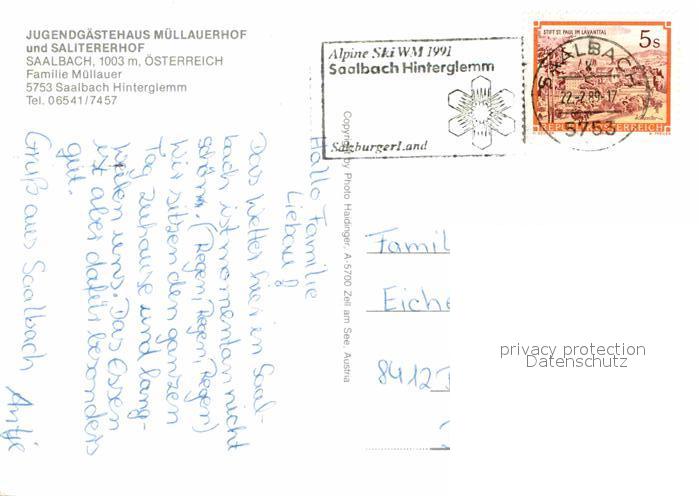 JUGENDGÄSTEHAUS MÜLLAUERHOF
und SALITERERHOF
SAALBACH, 1003 m, ÖSTERREICH
Familie Müllauer
5753 Saalbach Hinterglemm
Tel. 06541/7457
Alpine Ski WM 1991
Saalbach Hinterglemm
SalzburgerLand
STIFT ST. PAUL IM LAVANTTAL
5 s
REPUBLIK ÖSTERREICH
SAALBACH
22.-2.89-17
5753
Copyright by Photo Haidinger, A-5700 Zell am See, Austria
Hallo Familie
Liebau!
Das Wetter hier in Saal-
bach ist momentan nicht
schön. (Regen, Regen, Regen)
Wir sitzen den ganzen
Tag zuhause und lang-
weilen uns. Das Essen
ist aber dafür besonders
gut.
Gruß aus Saalbach
Antje
Famil
Eiche
8412
privacy protection
Datenschutz